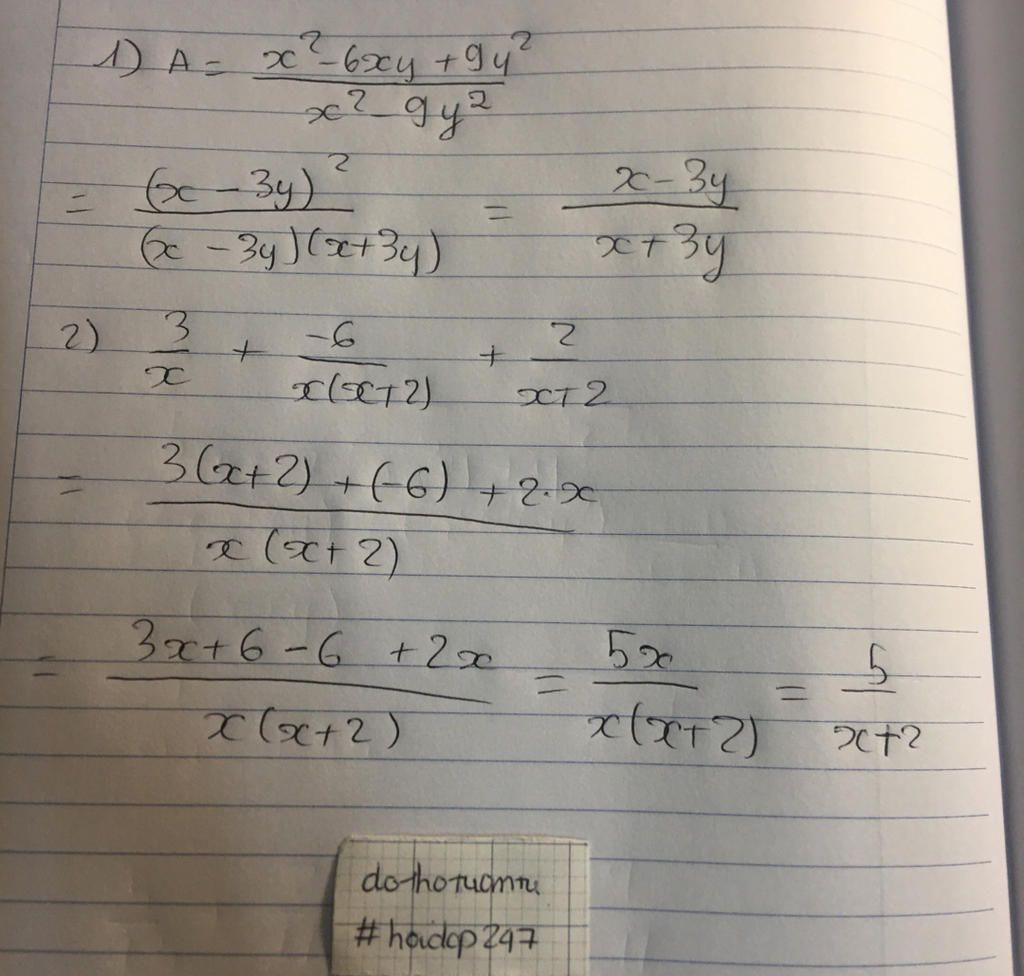 1) A = (x² - 6xy + 9y²) / (x² - 9y²)
= (x - 3y)² / (x - 3y)(x + 3y) = (x - 3y) / (x + 3y)
2) 3/x + -6 / x(x+2) + 2 / (x+2)
= 3(x+2) + (-6) + 2·x / x(x+2)
= 3x + 6 - 6 + 2x / x(x+2) = 5x / x(x+2) = 5 / (x+2)
#hoidap247